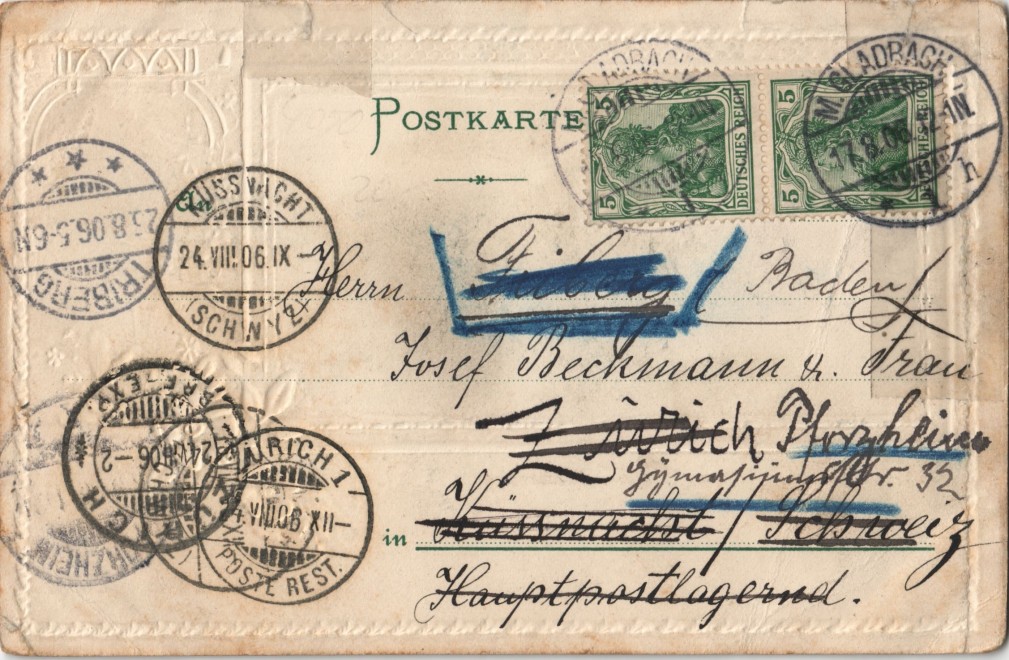 POSTKARTE
5 DEUTSCHES REICH 5
5 5
M. GLADBACH
17.8.06. 1-N.
h
TRIBERG
23.8.06.5-6N
KÜSSNACHT
24.VIII.06.IX-
(SCHWYZ)
Herrn Triberg / Baden /
Josef Beckmann u. Frau
Zürich Pforzheim
Gymnasiumstr. 32
in Küssnacht / Schweiz
Hauptpostlagernd.
ZÜRICH 1
24.VIII.06 XII-
POSTE REST.
ZÜRICH
BRF. EXP.
24.VIII.06-2
PFORZHEIM